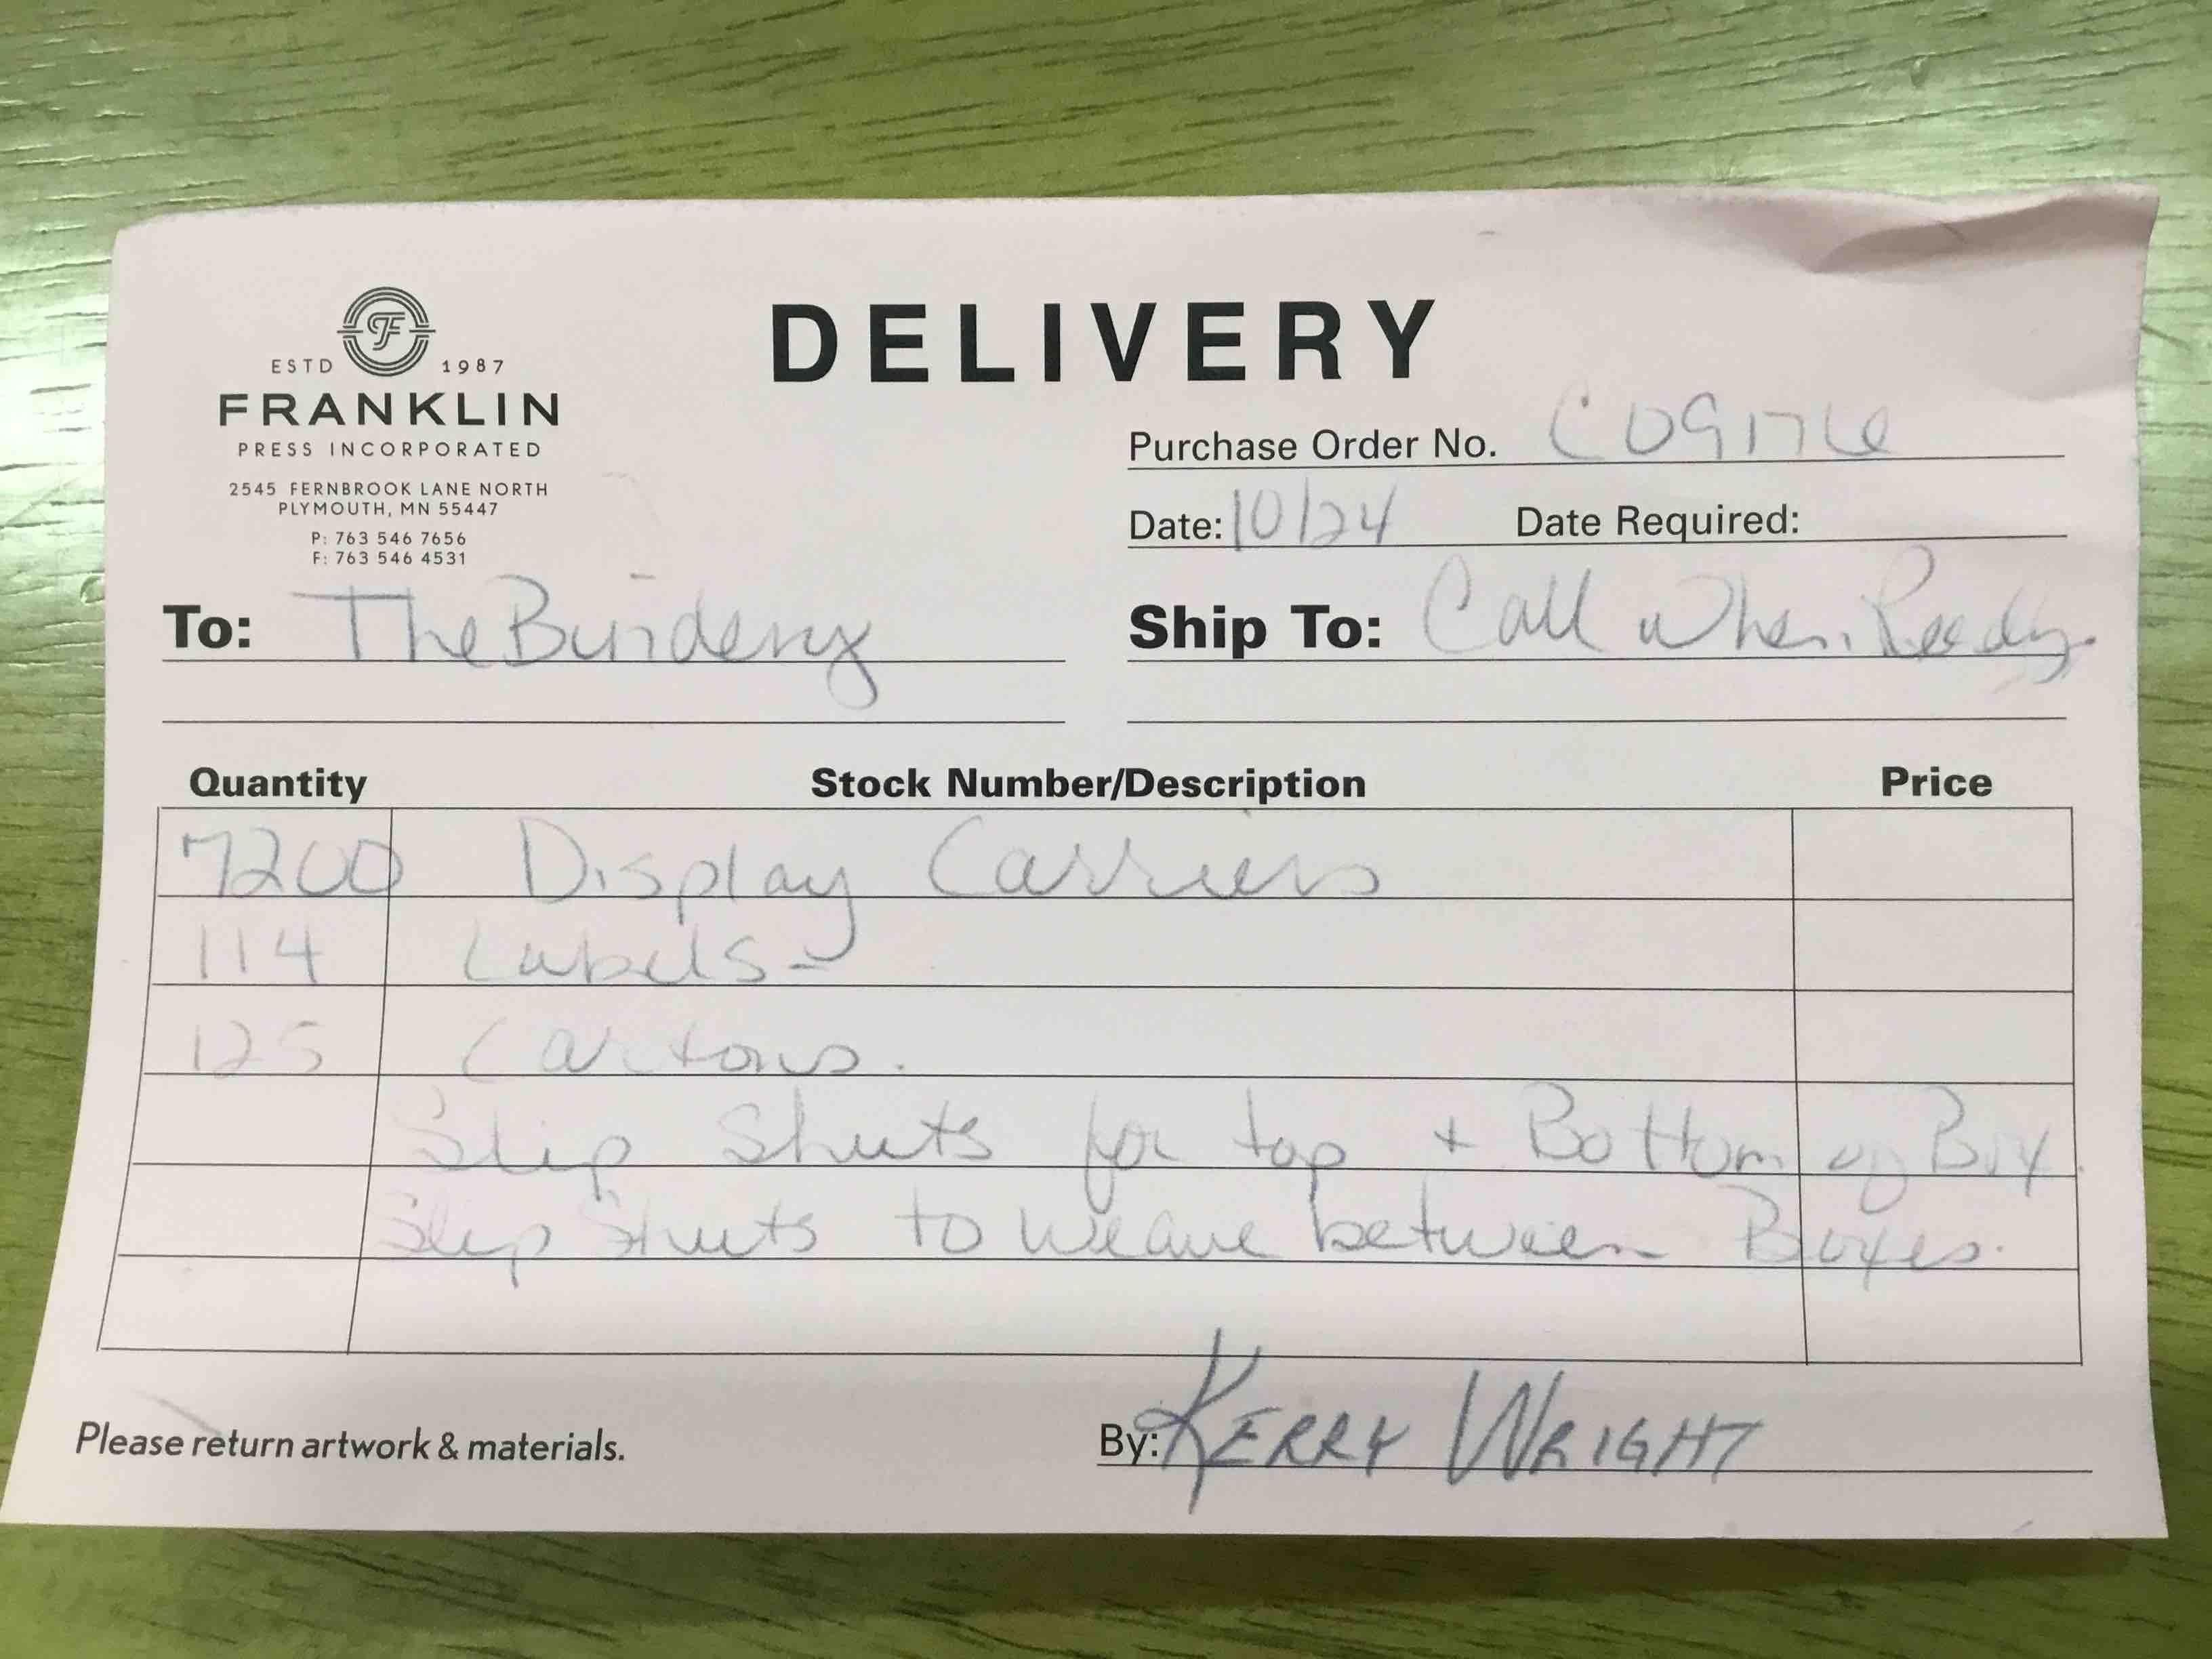 DELIVERY
ESTD 1987
FRANKLIN
PRESS INCORPORATED
2545 FERNBROOK LANE NORTH
PLYMOUTH, MN 55447
P: 763 546 7656
F: 763 546 4531
Purchase Order No. C09176
Date: 10/24 Date Required:
To: The Bindery
Ship To: Call When Ready.
Quantity Stock Number/Description Price
7200 Display Carriers
114 Labels
125 Cartons.
Slip Sheets for top + Bottom of Box.
Slip Sheets to weave between Boxes.
Please return artwork & materials.
By: KERRY WRIGHT